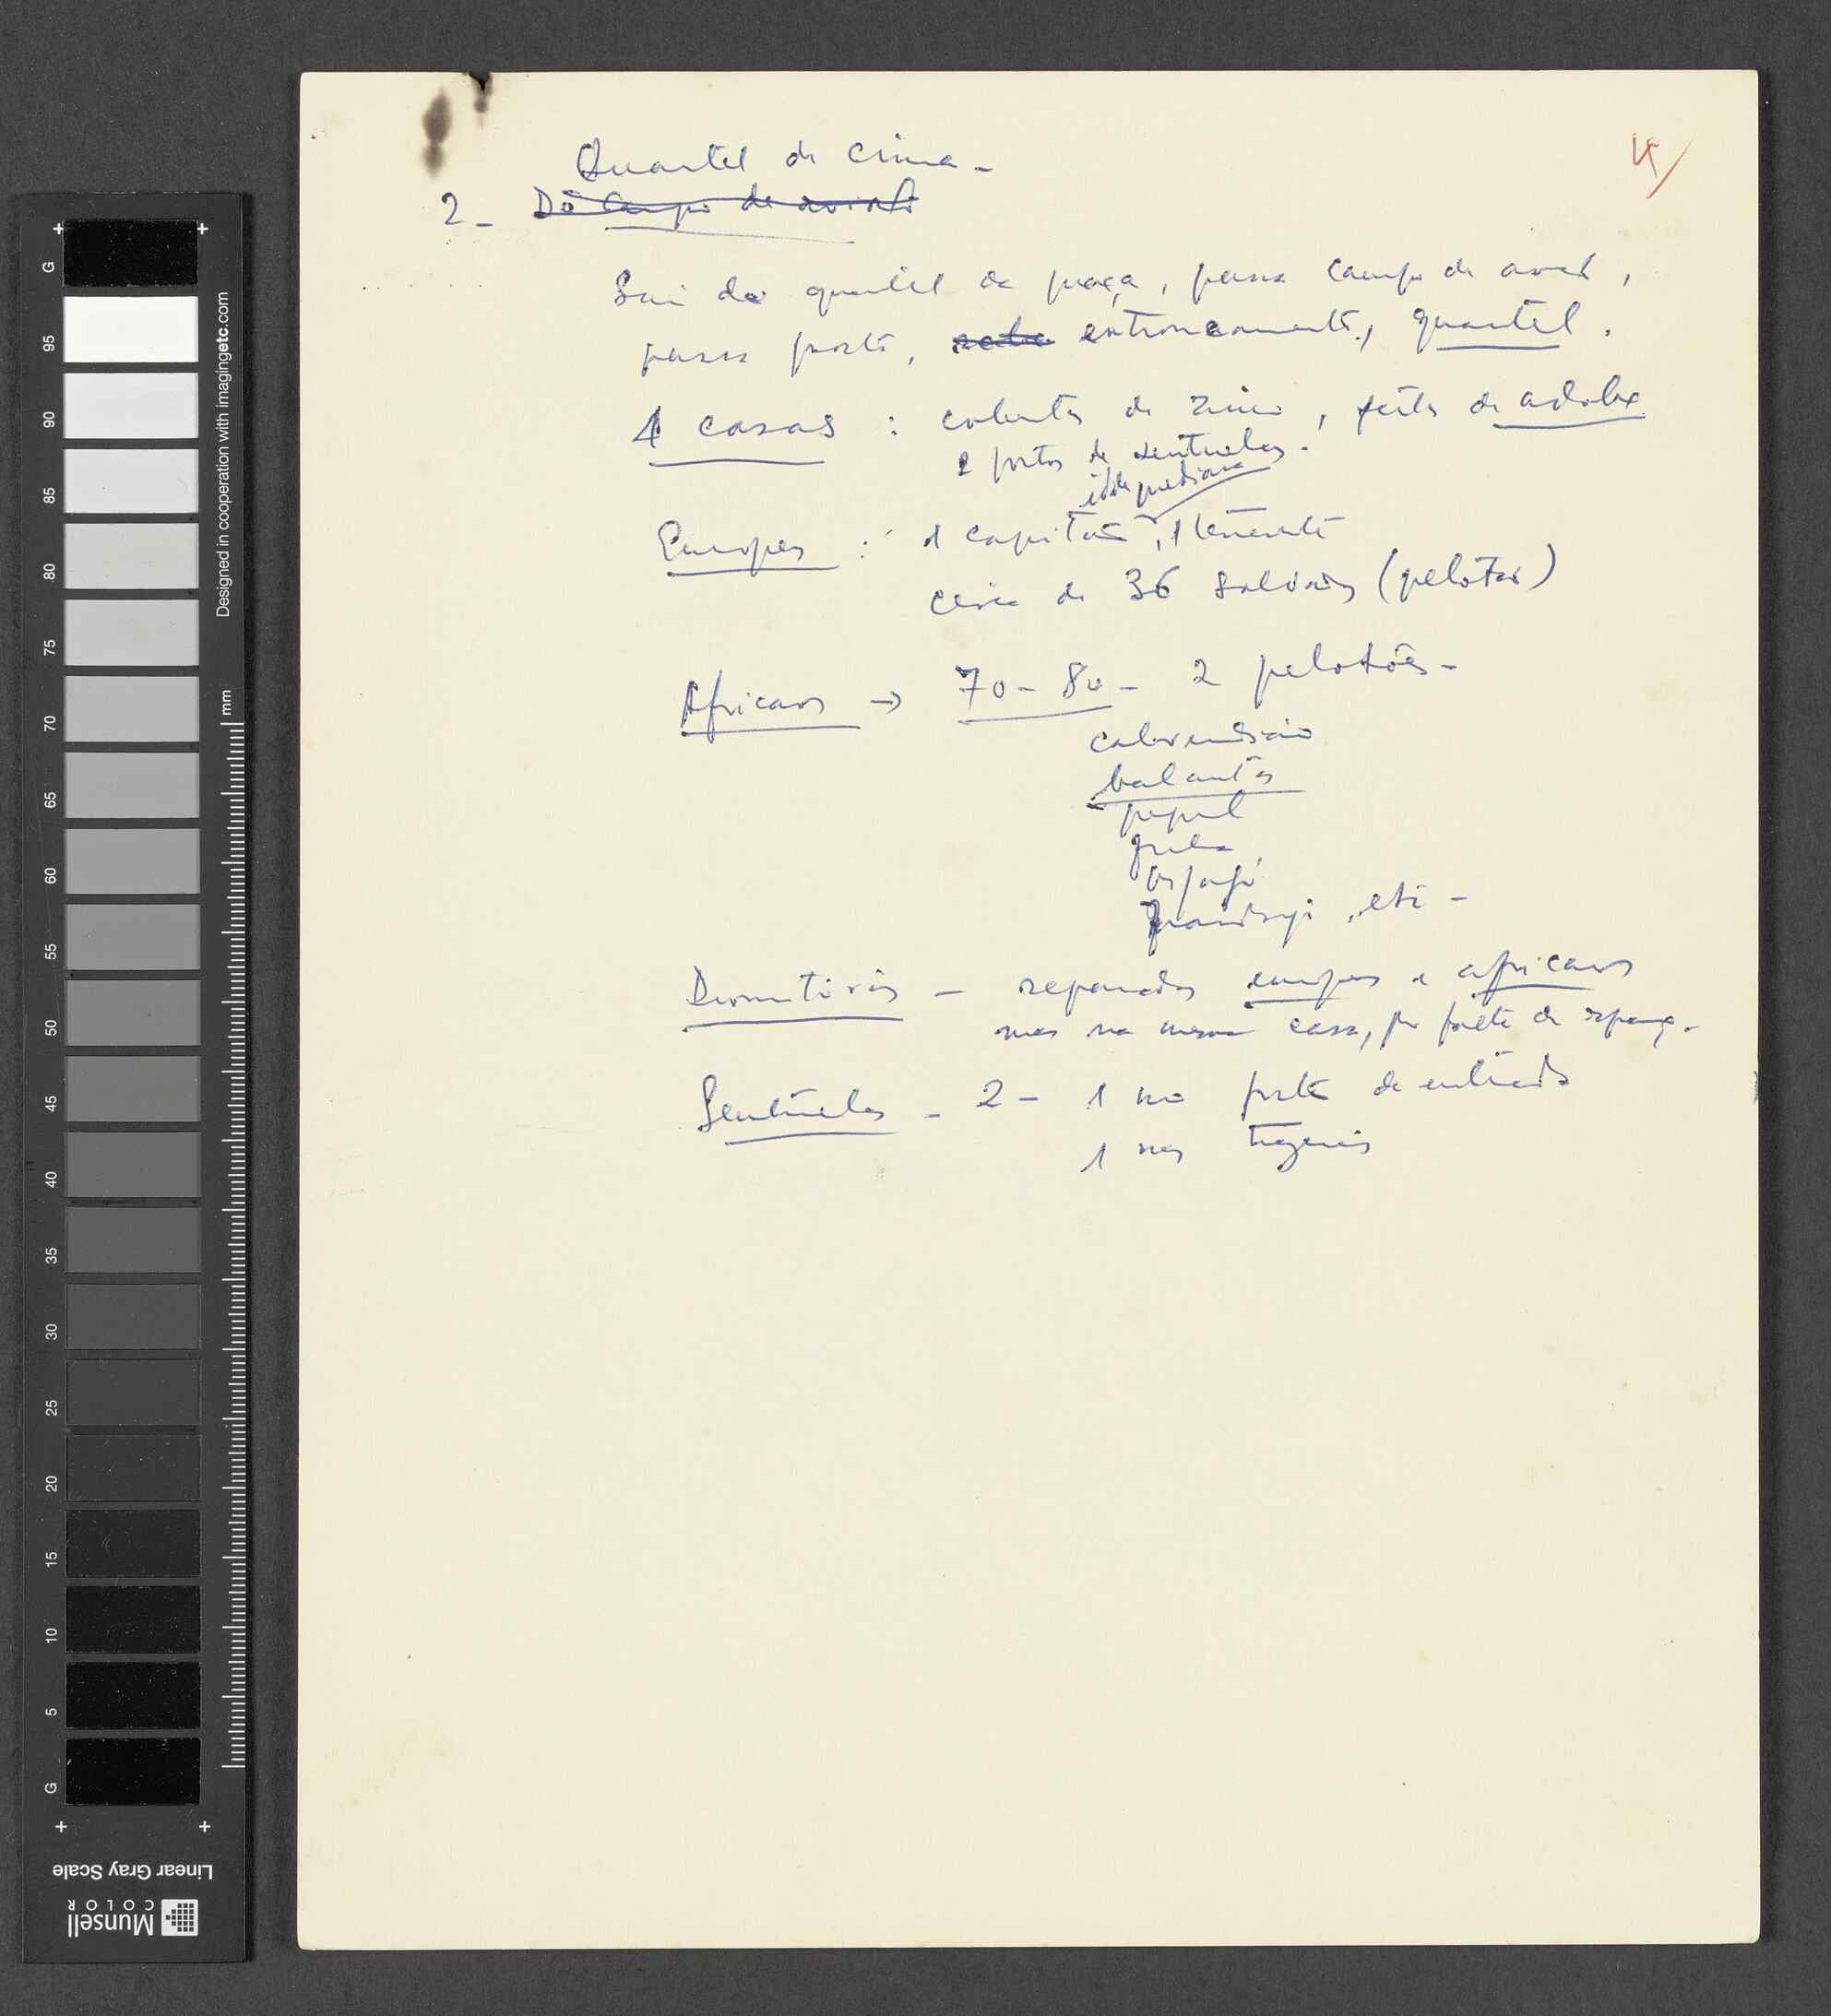 4/
Quartel de cima -
2 - Do Campo de aviação
Sai do quartel da praça, passa campo de aviaç,
passa porto, entroncamento, quartel.
4 casas : cobertas de zinco, feitas de adobe
2 postos de sentinelas.
idade mediana
Europeus : 1 capitão, 1 tenente
cerca de 36 soldados (pelotão)
Africanos → 70 - 80 - 2 pelotões -
caboverdiano
balantas
papel
fula
bijagó
mandinga, etc -
Dormitórios - separados europeus e africanos
mas na mesma casa, por falta de espaço.
Sentinelas - 2 - 1 no portão de entrada
1 nas traseiras
G
95
90
85
80
75
70
65
60
55
50
45
40
35
30
25
20
15
10
5
G
mm
Designed in cooperation with imagingetc.com
Linear Gray Scale
Munsell
COLOR